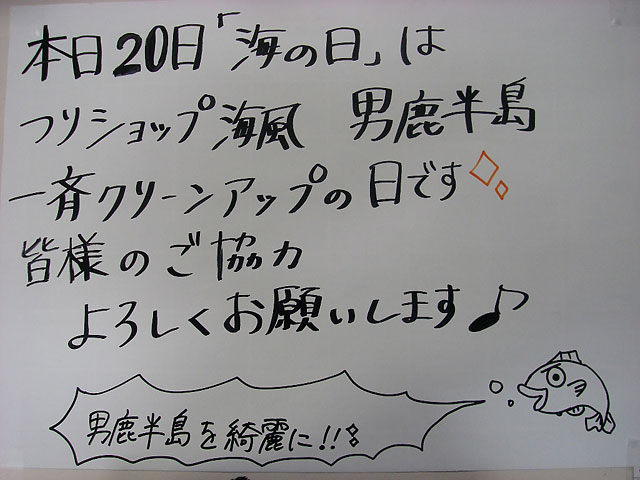 本日20日「海の日」は
つりショップ海風 男鹿半島
一斉クリーンアップの日です
皆様のご協力
よろしくお願いします♪
男鹿半島を綺麗に!!